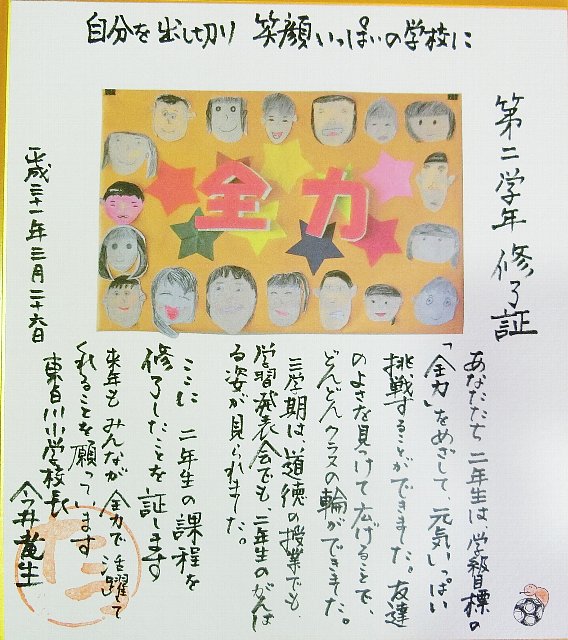 自分を出し切り 笑顔いっぱいの学校に
全力
第二学年 修了証
あなたたち 二年生は、学級目標の
「全力」をめざして、元気いっぱい
挑戦することができました。友達
のよさを見つけて広げることで、
どんどんクラスの輪ができました。
三学期は、道徳の授業でも、
学習発表会でも、二年生のがんば
る姿が見られました。
ここに 二年生の課程を
修了したことを証します
来年も みんなが 全力で 活躍て
くれることを願っています
平成三十一年三月二十六日
東白川小学校長 今井竜生